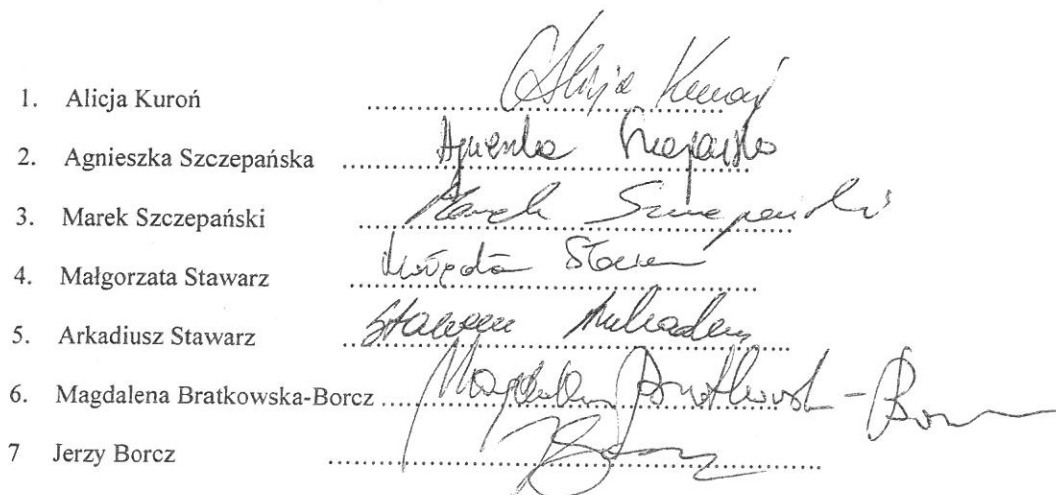 1. Alicja Kuroń ........ Alicja Kuroń
2. Agnieszka Szczepańska ........ Agnieszka
3. Marek Szczepański ........ Marek Szczepański
4. Małgorzata Stawarz ........
5. Arkadiusz Stawarz ........ Stawarz Arkadiusz
6. Magdalena Bratkowska-Borcz ........ Magdalena Bratkowska-Borcz
7 Jerzy Borcz ........